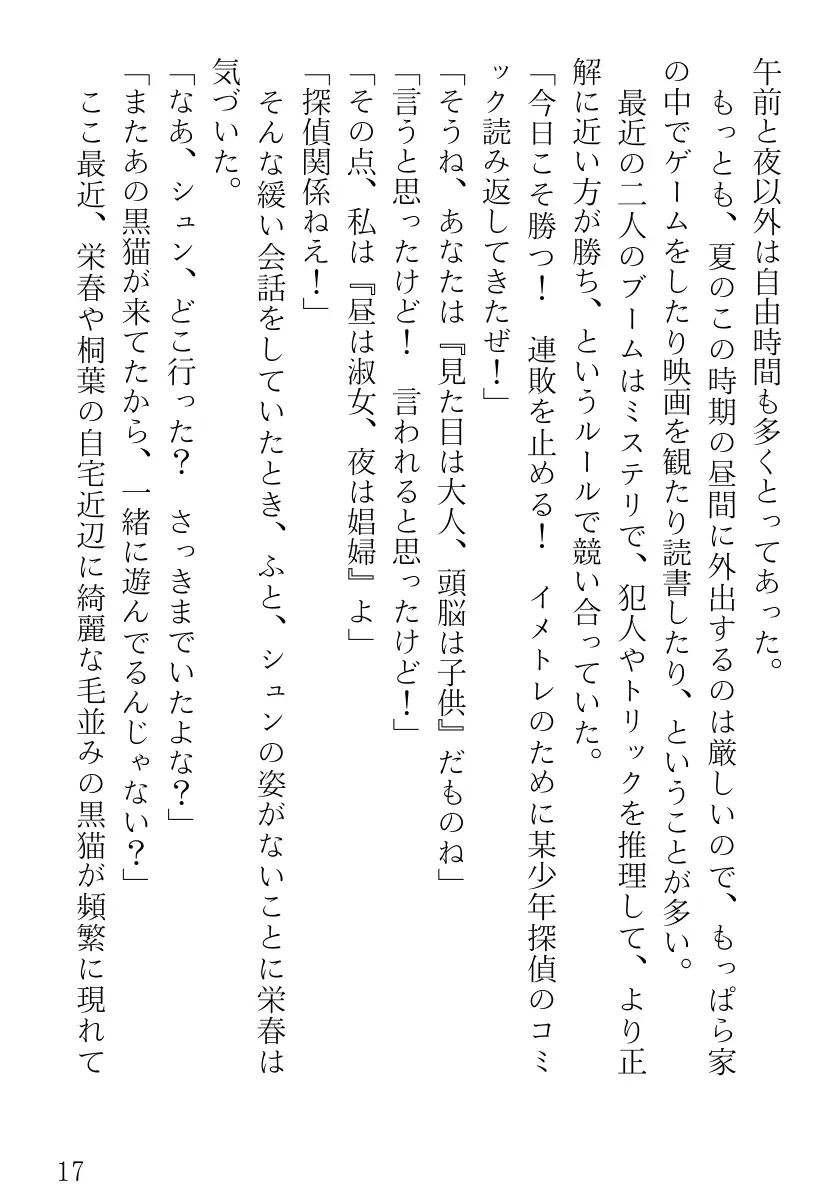 午前と夜以外は自由時間も多くとってあった。
　もっとも、夏のこの時期の昼間に外出するのは厳しいので、もっぱら家
の中でゲームをしたり映画を観たり読書したり、ということが多い。
　最近の二人のブームはミステリで、犯人やトリックを推理して、より正
解に近い方が勝ち、というルールで競い合っていた。
「今日こそ勝つ！　連敗を止める！　イメトレのために某少年探偵のコミ
ック読み返してきたぜ！」
「そうね、あなたは『見た目は大人、頭脳は子供』だものね」
「言うと思ったけど！　言われると思ったけど！」
「その点、私は『昼は淑女、夜は娼婦』よ」
「探偵関係ねえ！」
　そんな緩い会話をしていたとき、ふと、シュンの姿がないことに栄春は
気づいた。
「なあ、シュン、どこ行った？　さっきまでいたよな？」
「またあの黒猫が来てたから、一緒に遊んでるんじゃない？」
　ここ最近、栄春や桐葉の自宅近辺に綺麗な毛並みの黒猫が頻繁に現れて
17